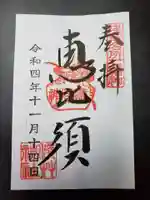 奉拝
恵比須
令和四年十一月十四日